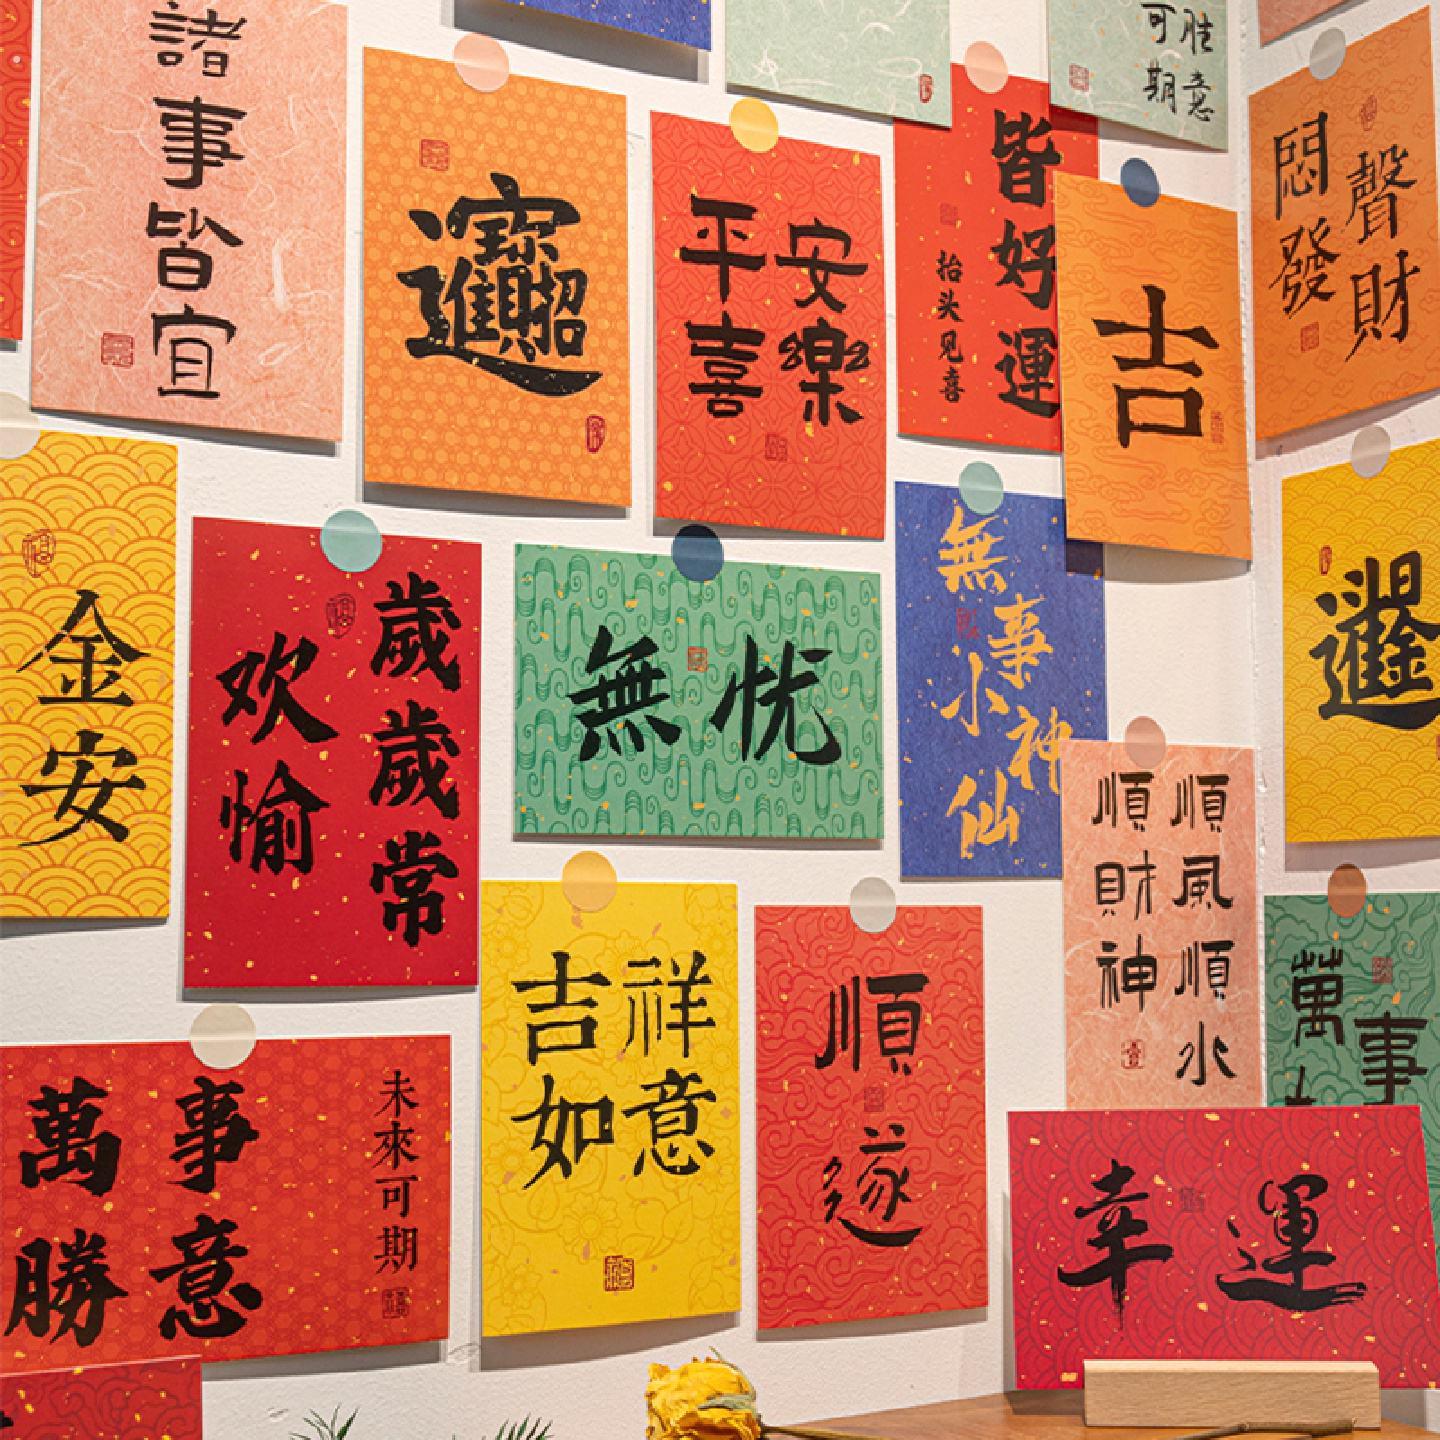 諸事皆宜
招財進寶
平安
喜樂
皆好運
抬头见喜
可期
胜意
吉
悶聲
發財
金安
歲歲常
欢愉
無忧
無事
小神
仙
順風順水
順財神
吉祥
如意
順遂
萬事
萬事
勝意
未來可期
幸運